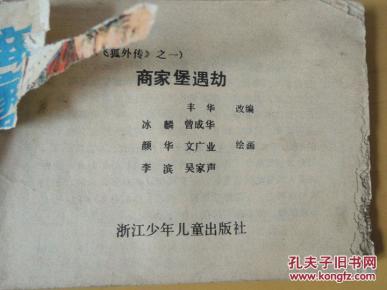 《狐外传》之一)
商家堡遇劫
丰华 改编
冰麟 曾成华
颜华 文广业 绘画
李滨 吴家声
浙江少年儿童出版社
孔夫子旧书网